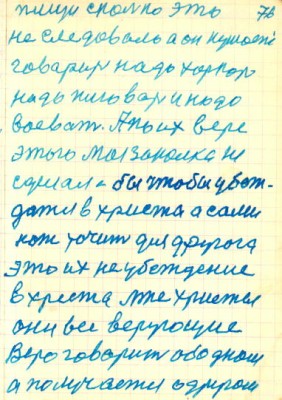 пищи сколко это 76
не следовало а он кушает
говорил надо хорхор
надо
воеват. А по их вере
этого Мы законика не
сделал - бы чтобы убеж-
датя в христа а сами
нож точит для другога
это их не убеждение
в христа мне христы
они все верующие
Вера говорит об одном
а получается о другом